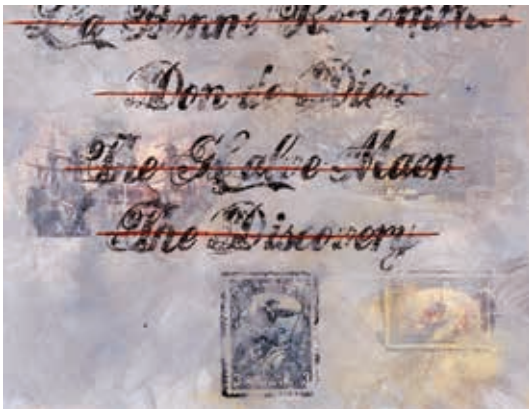 La Bonne Renommée
Don de Dieu
The Halve Maen
The Discovery